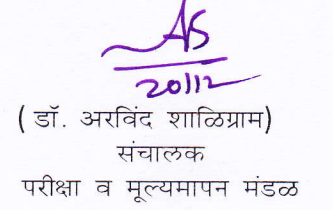 20/12
( डॉ. अरविंद शाळिग्राम)
संचालक
परीक्षा व मूल्यमापन मंडळ